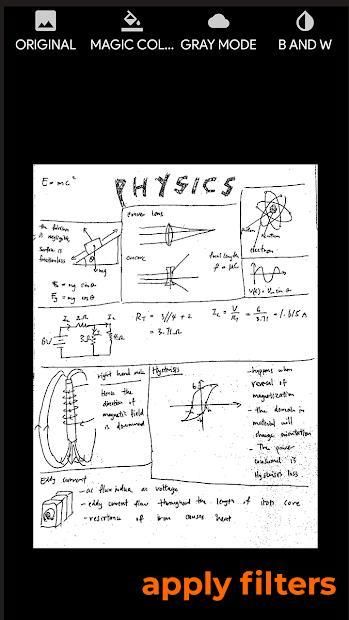 ORIGINAL
MAGIC COL...
GRAY MODE
B AND W
E = mc²
PHYSICS
convex lens
the friction
is negligible
Surface is
frictionless
mg
concave
focal length
electron
6V
2Ω
3Ω
4Ω
R_T = 3//4 + 2
= 3.71Ω
I_c = V/R_T = 6/3.71 = 1.615 A
right hand rule
Hence the
direction of
magnetic field
is downward
Hysterisis
- happens when
reversal of
magnetization
- the domain in
material will
change orientation
- The power
consumed is
Hysterisis loss
Eddy current
- ac flux induce ac voltage
- eddy current flow throughout the length of iron core
- resistance of iron causes heat
apply filters